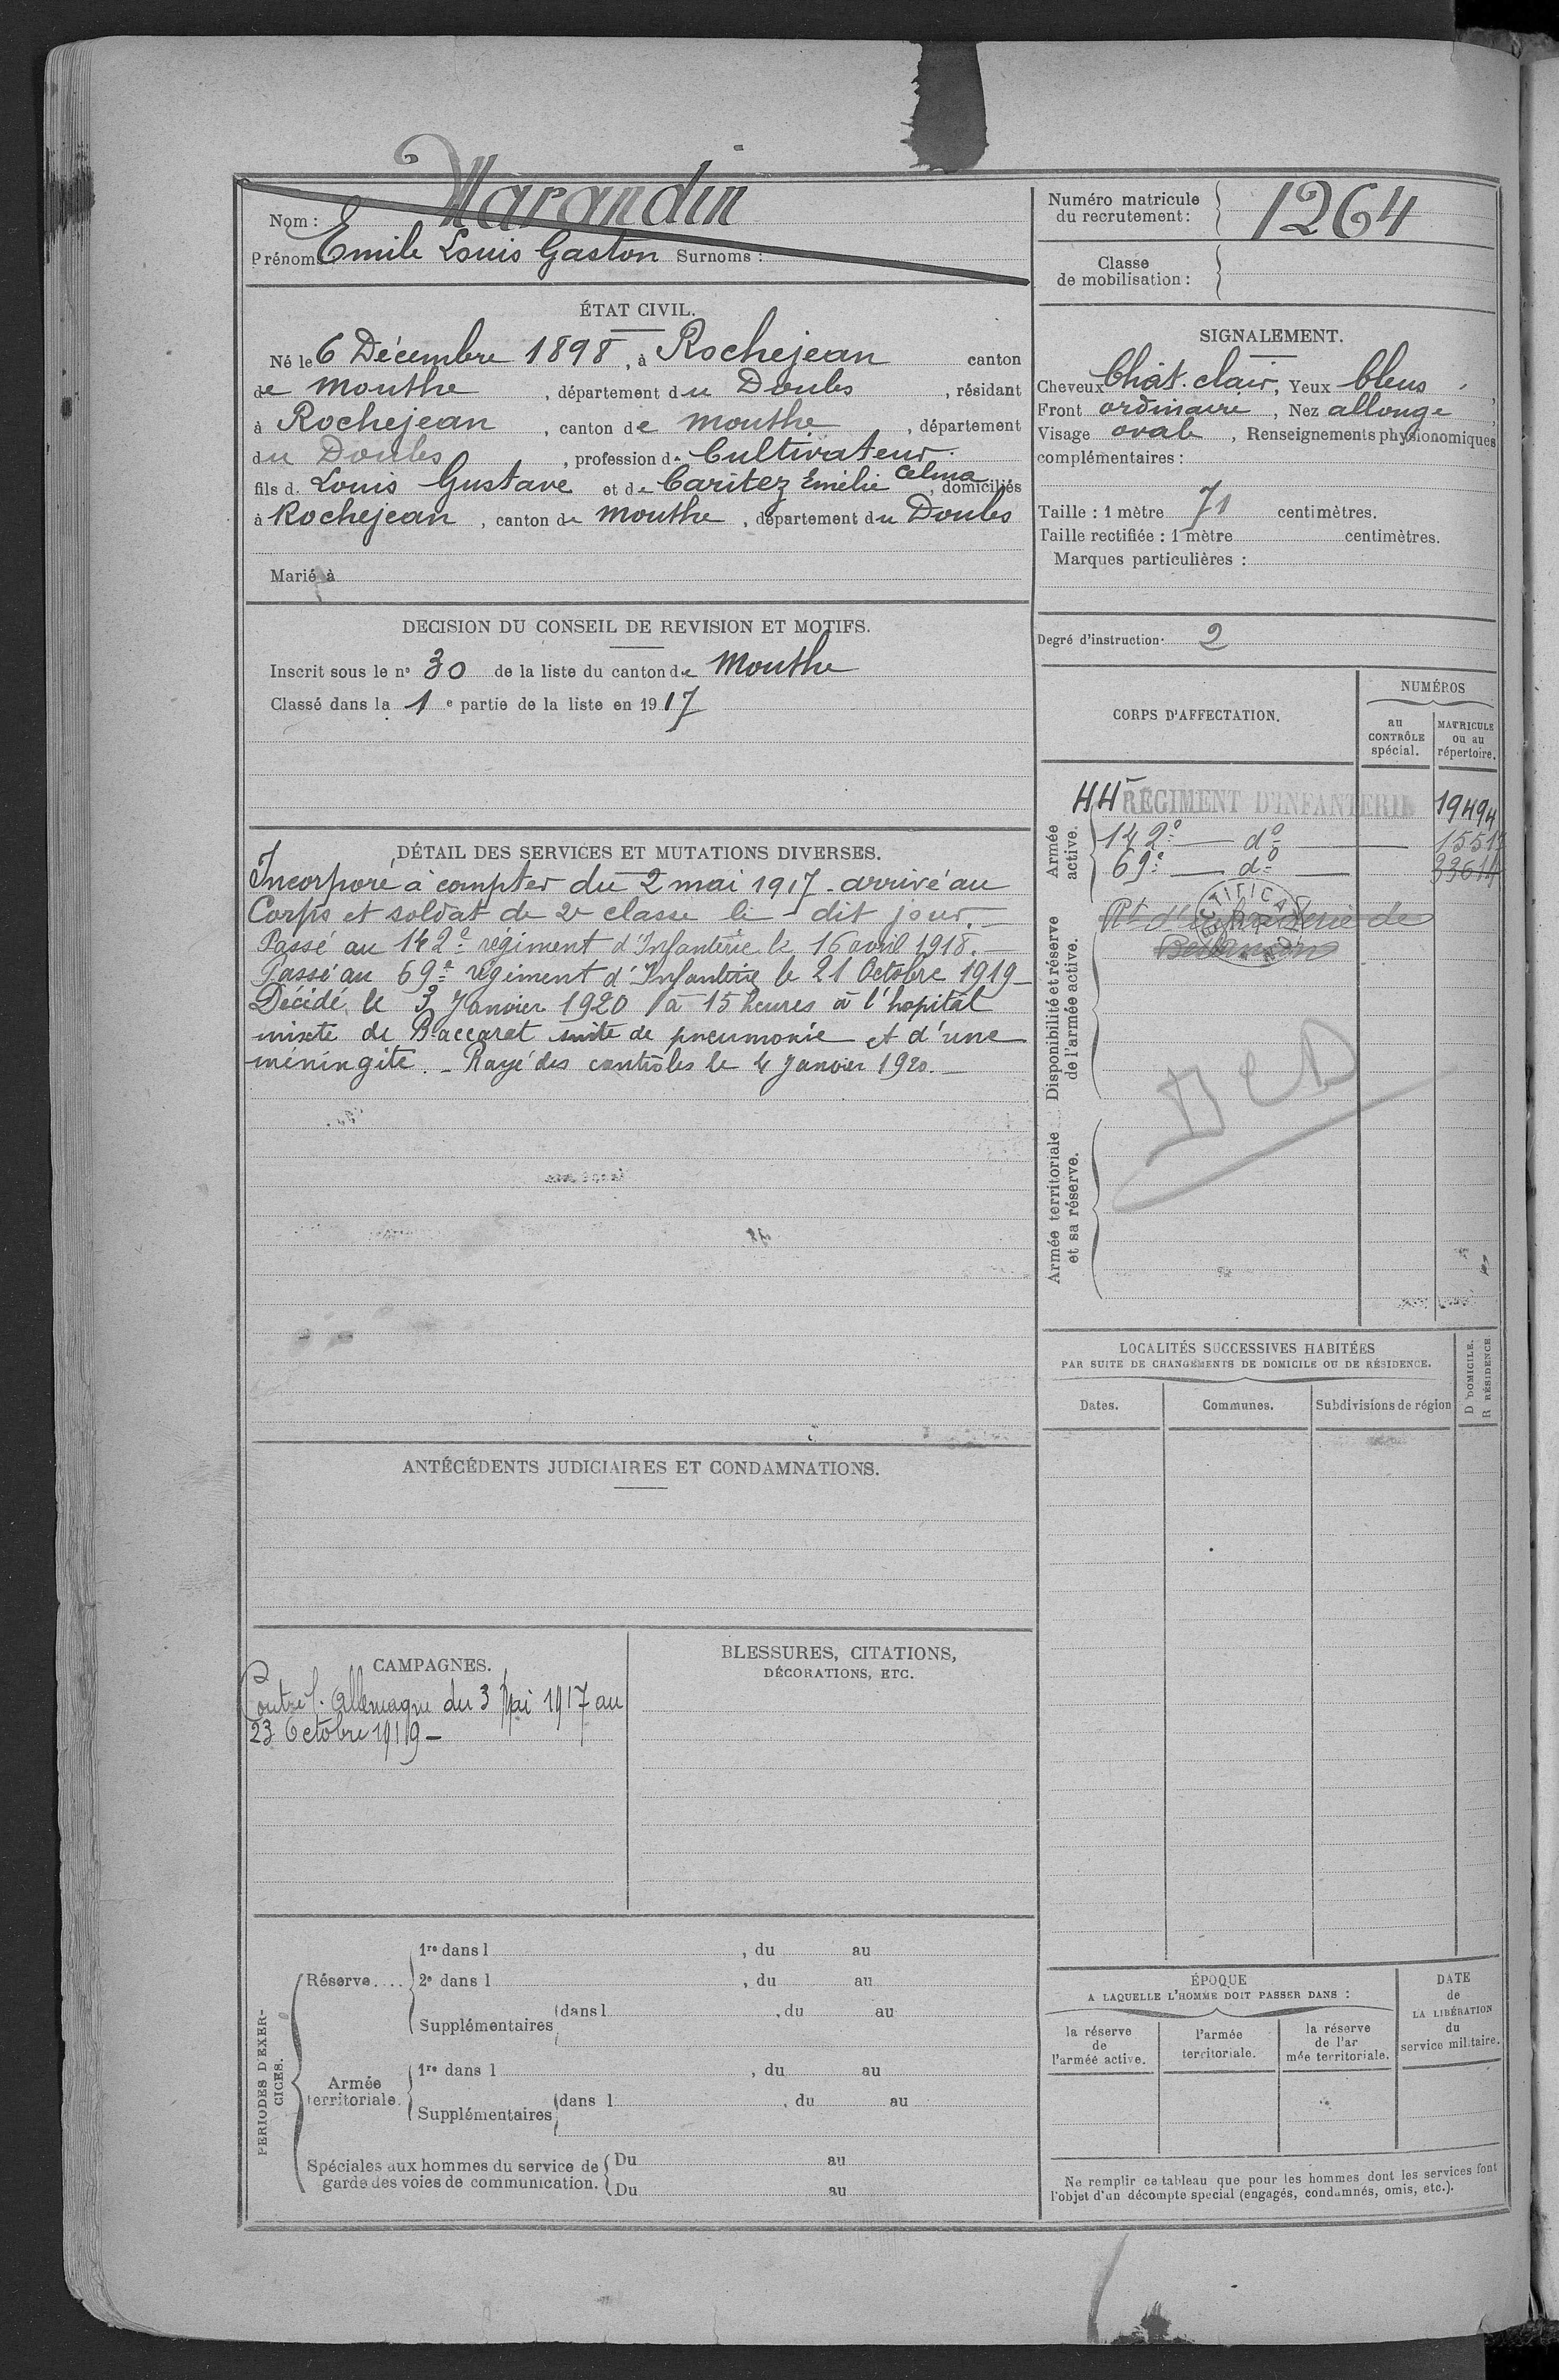 Nom : Marandin
Prénoms Emile Louis Gaston Surnoms :
ÉTAT CIVIL.
Né le 6 Décembre 1898, à Rochejean canton
de Mouthe, département du Doubs, résidant
à Rochejean, canton de Mouthe, département
du Doubs, profession de Cultivateur.
fils d. Louis Gustave et de Caritez Emélie Celina, domiciliés
à Rochejean, canton de Mouthe, département du Doubs
Marié à
DECISION DU CONSEIL DE REVISION ET MOTIFS.
Inscrit sous le n° 30 de la liste du canton de Mouthe
Classé dans la 1e partie de la liste en 1917
DÉTAIL DES SERVICES ET MUTATIONS DIVERSES.
Incorporé à compter du 2 mai 1917. arrivé au
Corps et soldat de 2e classe le dit jour.
Passé au 142e régiment d'Infanterie le 16 avril 1918.
Passé au 69e régiment d'Infanterie le 21 Octobre 1919
Décédé le 3 Janvier 1920 à 15 heures à l'hopital
mixte de Baccarat suite de pneumonie et d'une
méningite. - Rayé des contrôles le 4 Janvier 1920. -
ANTÉCÉDENTS JUDICIAIRES ET CONDAMNATIONS.
CAMPAGNES.
Contre l'Allemagne du 3 Mai 1917 au
23 Octobre 1919 -
BLESSURES, CITATIONS,
DÉCORATIONS, ETC.
PÉRIODES D'EXER-
CICES.
Réserve....
1re dans l , du au
2e dans l , du au
Supplémentaires dans l , du au
Armée
territoriale.
1re dans l , du au
Supplémentaires dans l , du au
Spéciales aux hommes du service de
garde des voies de communication.
Du au
Du au
Numéro matricule
du recrutement :
1264
Classe
de mobilisation :
SIGNALEMENT.
Cheveux Chât. clair, Yeux bleus,
Front ordinaire, Nez allongé
Visage ovale, Renseignements physionomiques
complémentaires :
Taille : 1 mètre 71 centimètres.
Taille rectifiée : 1 mètre centimètres.
Marques particulières :
Degré d'instruction 2
CORPS D'AFFECTATION.
NUMÉROS
au
CONTRÔLE
spécial.
MATRICULE
ou au
répertoire.
Armée
active.
44e RÉGIMENT D'INFANTERIE 19494
142e — d° —
69e — d° —
Disponibilité et réserve
de l'armée active.
Rt d'infanterie de
Besançon
DCD
Armée territoriale
et sa réserve.
LOCALITÉS SUCCESSIVES HABITÉES
PAR SUITE DE CHANGEMENTS DE DOMICILE OU DE RÉSIDENCE.
Dates.
Communes.
Subdivisions de région
D DOMICILE.
R RÉSIDENCE
ÉPOQUE
A LAQUELLE L'HOMME DOIT PASSER DANS :
la réserve
de
l'armée active.
l'armée
territoriale.
la réserve
de l'ar
mée territoriale.
DATE
de
LA LIBÉRATION
du
service militaire.
Ne remplir ce tableau que pour les hommes dont les services font
l'objet d'un décompte spécial (engagés, condamnés, omis, etc.).